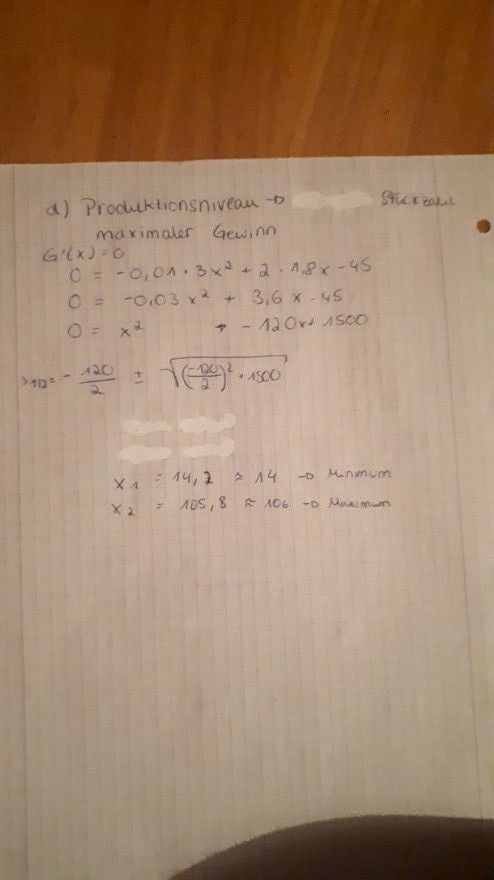 d) Produktionsniveau → Stückzahl
maximaler Gewinn
G'(x) = 0
0 = -0,01 · 3x² + 2 · 1,8x - 45
0 = -0,03x² + 3,6x - 45
0 = x² - 120x + 1500
x1/2 = - 120/2 ± √((-120/2)² + 1500)
x1 = 14,2 ≈ 14 → Minimum
x2 = 105,8 ≈ 106 → Maximum